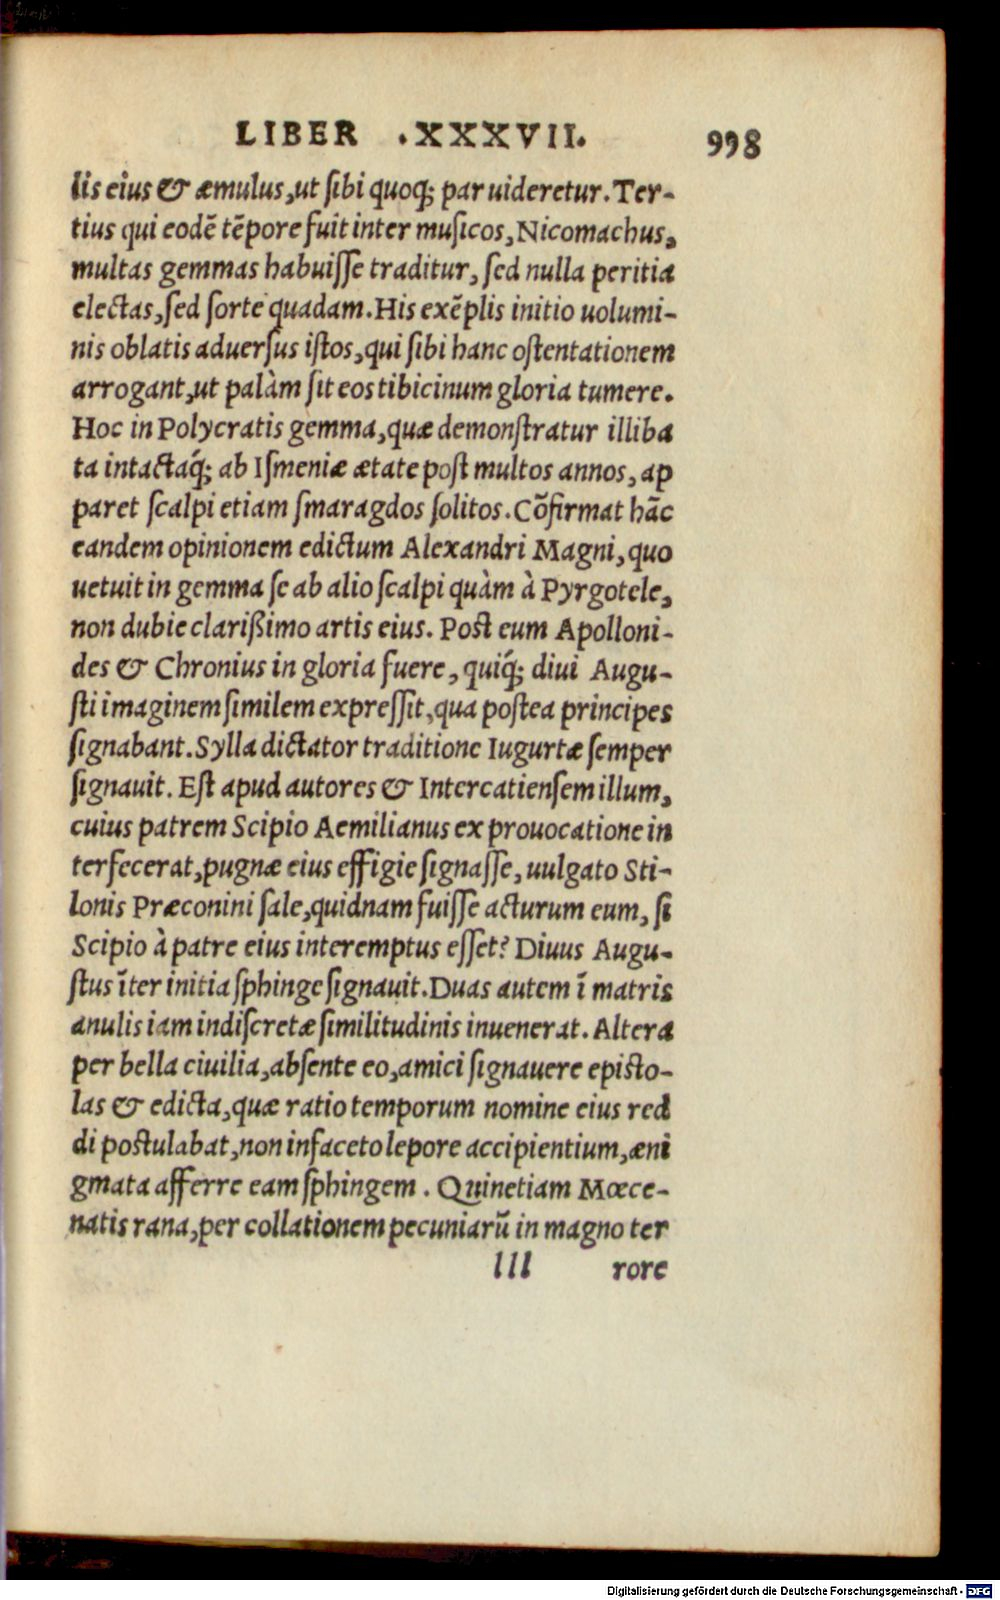 LIBER .XXXVII. 998
lis eius & æmulus, ut sibi quoq; par uideretur. Ter-
tius qui eodē tēpore fuit inter musicos, Nicomachus,
multas gemmas habuisse traditur, sed nulla peritia
electas, sed sorte quadam. His exēplis initio uolumi-
nis oblatis aduersus istos, qui sibi hanc ostentationem
arrogant, ut palàm sit eos tibicinum gloria tumere.
Hoc in Polycratis gemma, quæ demonstratur illiba
ta intactaq́; ab Ismeniæ ætate post multos annos, ap
paret scalpi etiam smaragdos solitos. Cōfirmat hāc
eandem opinionem edictum Alexandri Magni, quo
uetuit in gemma se ab alio scalpi quàm à Pyrgotele,
non dubie clarißimo artis eius. Post eum Apolloni-
des & Chronius in gloria fuere, quiq́; diui Augu-
sti imaginem similem expressit, qua postea principes
signabant. Sylla dictator traditione Iugurtæ semper
signauit. Est apud autores & Intercatiensem illum,
cuius patrem Scipio Aemilianus ex prouocatione in
terfecerat, pugnæ eius effigie signasse, uulgato Sti-
lonis Præconini sale, quidnam fuisse acturum eum, si
Scipio à patre eius interemptus esset? Diuus Augu-
stus īter initia sphinge signauit. Duas autem ī matris
anulis iam indiscretæ similitudinis inuenerat. Altera
per bella ciuilia, absente eo, amici signauere episto-
las & edicta, quæ ratio temporum nomine eius red
di postulabat, non infaceto lepore accipientium, æni
gmata afferre eam sphingem. Quinetiam Mœce-
natis rana, per collationem pecuniarū in magno ter
lll rore
Digitalisierung gefördert durch die Deutsche Forschungsgemeinschaft - DFG